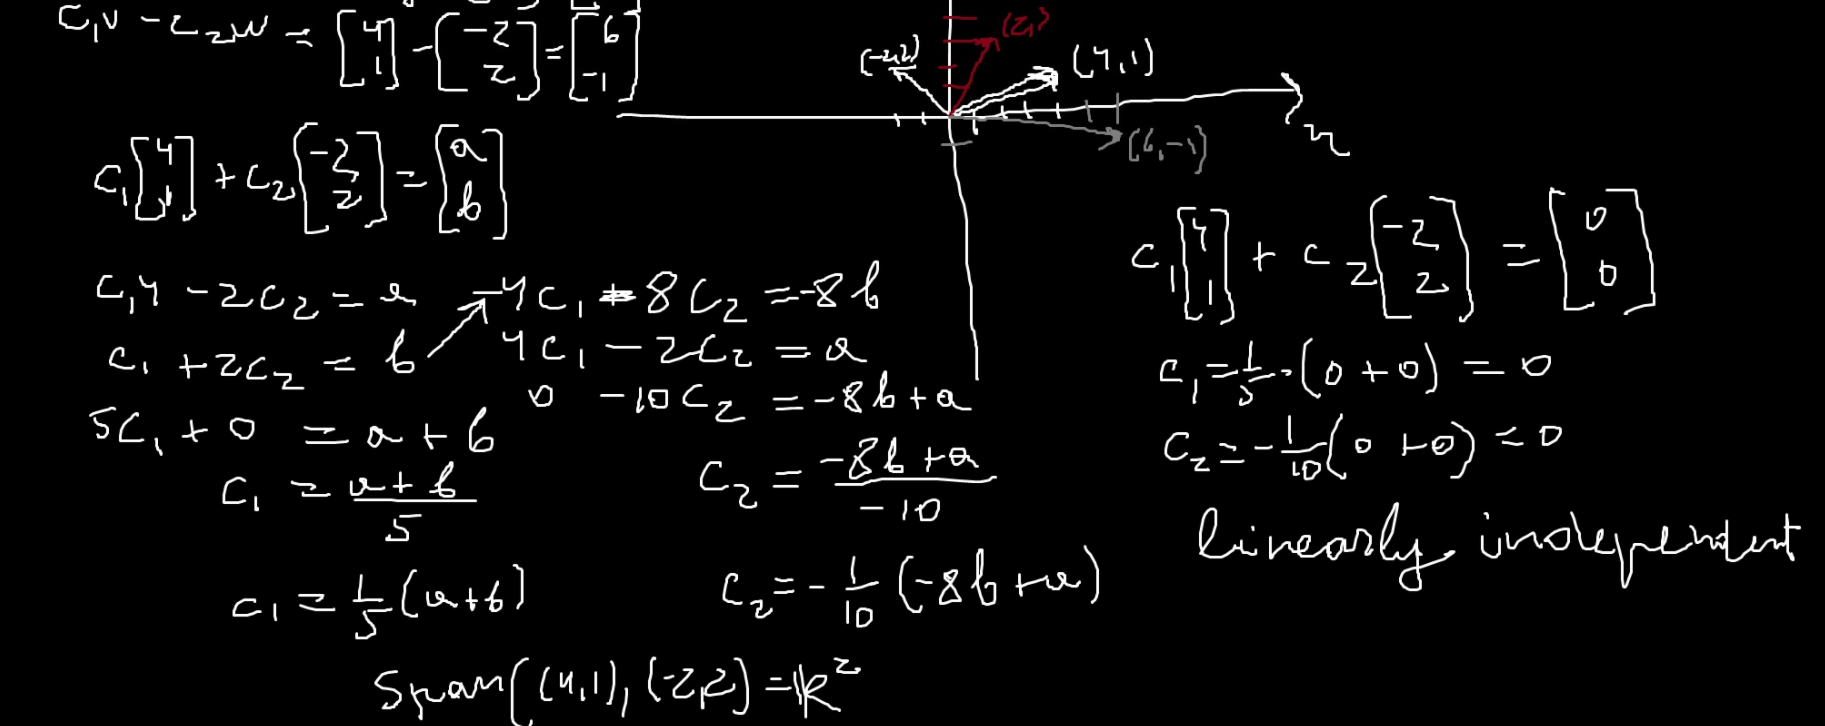 C₁V - C₂W = [4 1] - [-2 2] = [6 -1]
(2,)
(-2,2)
(4,1)
(6,-1)
x
C₁[4 1] + C₂[-2 2] = [a b]
C₁4 - 2C₂ = a
C₁ + 2C₂ = b
5C₁ + 0 = a + b
C₁ = a + b / 5
C₁ = 1/5 (a+b)
-4C₁ - 8C₂ = -8b
4C₁ - 2C₂ = a
0 -10C₂ = -8b + a
C₂ = -8b + a / -10
C₂ = - 1/10 (-8b + a)
Span((4,1), (-2,2) = ℝ²
C₁[4 1] + C₂[-2 2] = [0 0]
C₁ = 1/5 · (0 + 0) = 0
C₂ = - 1/10 (0 + 0) = 0
linearly independent